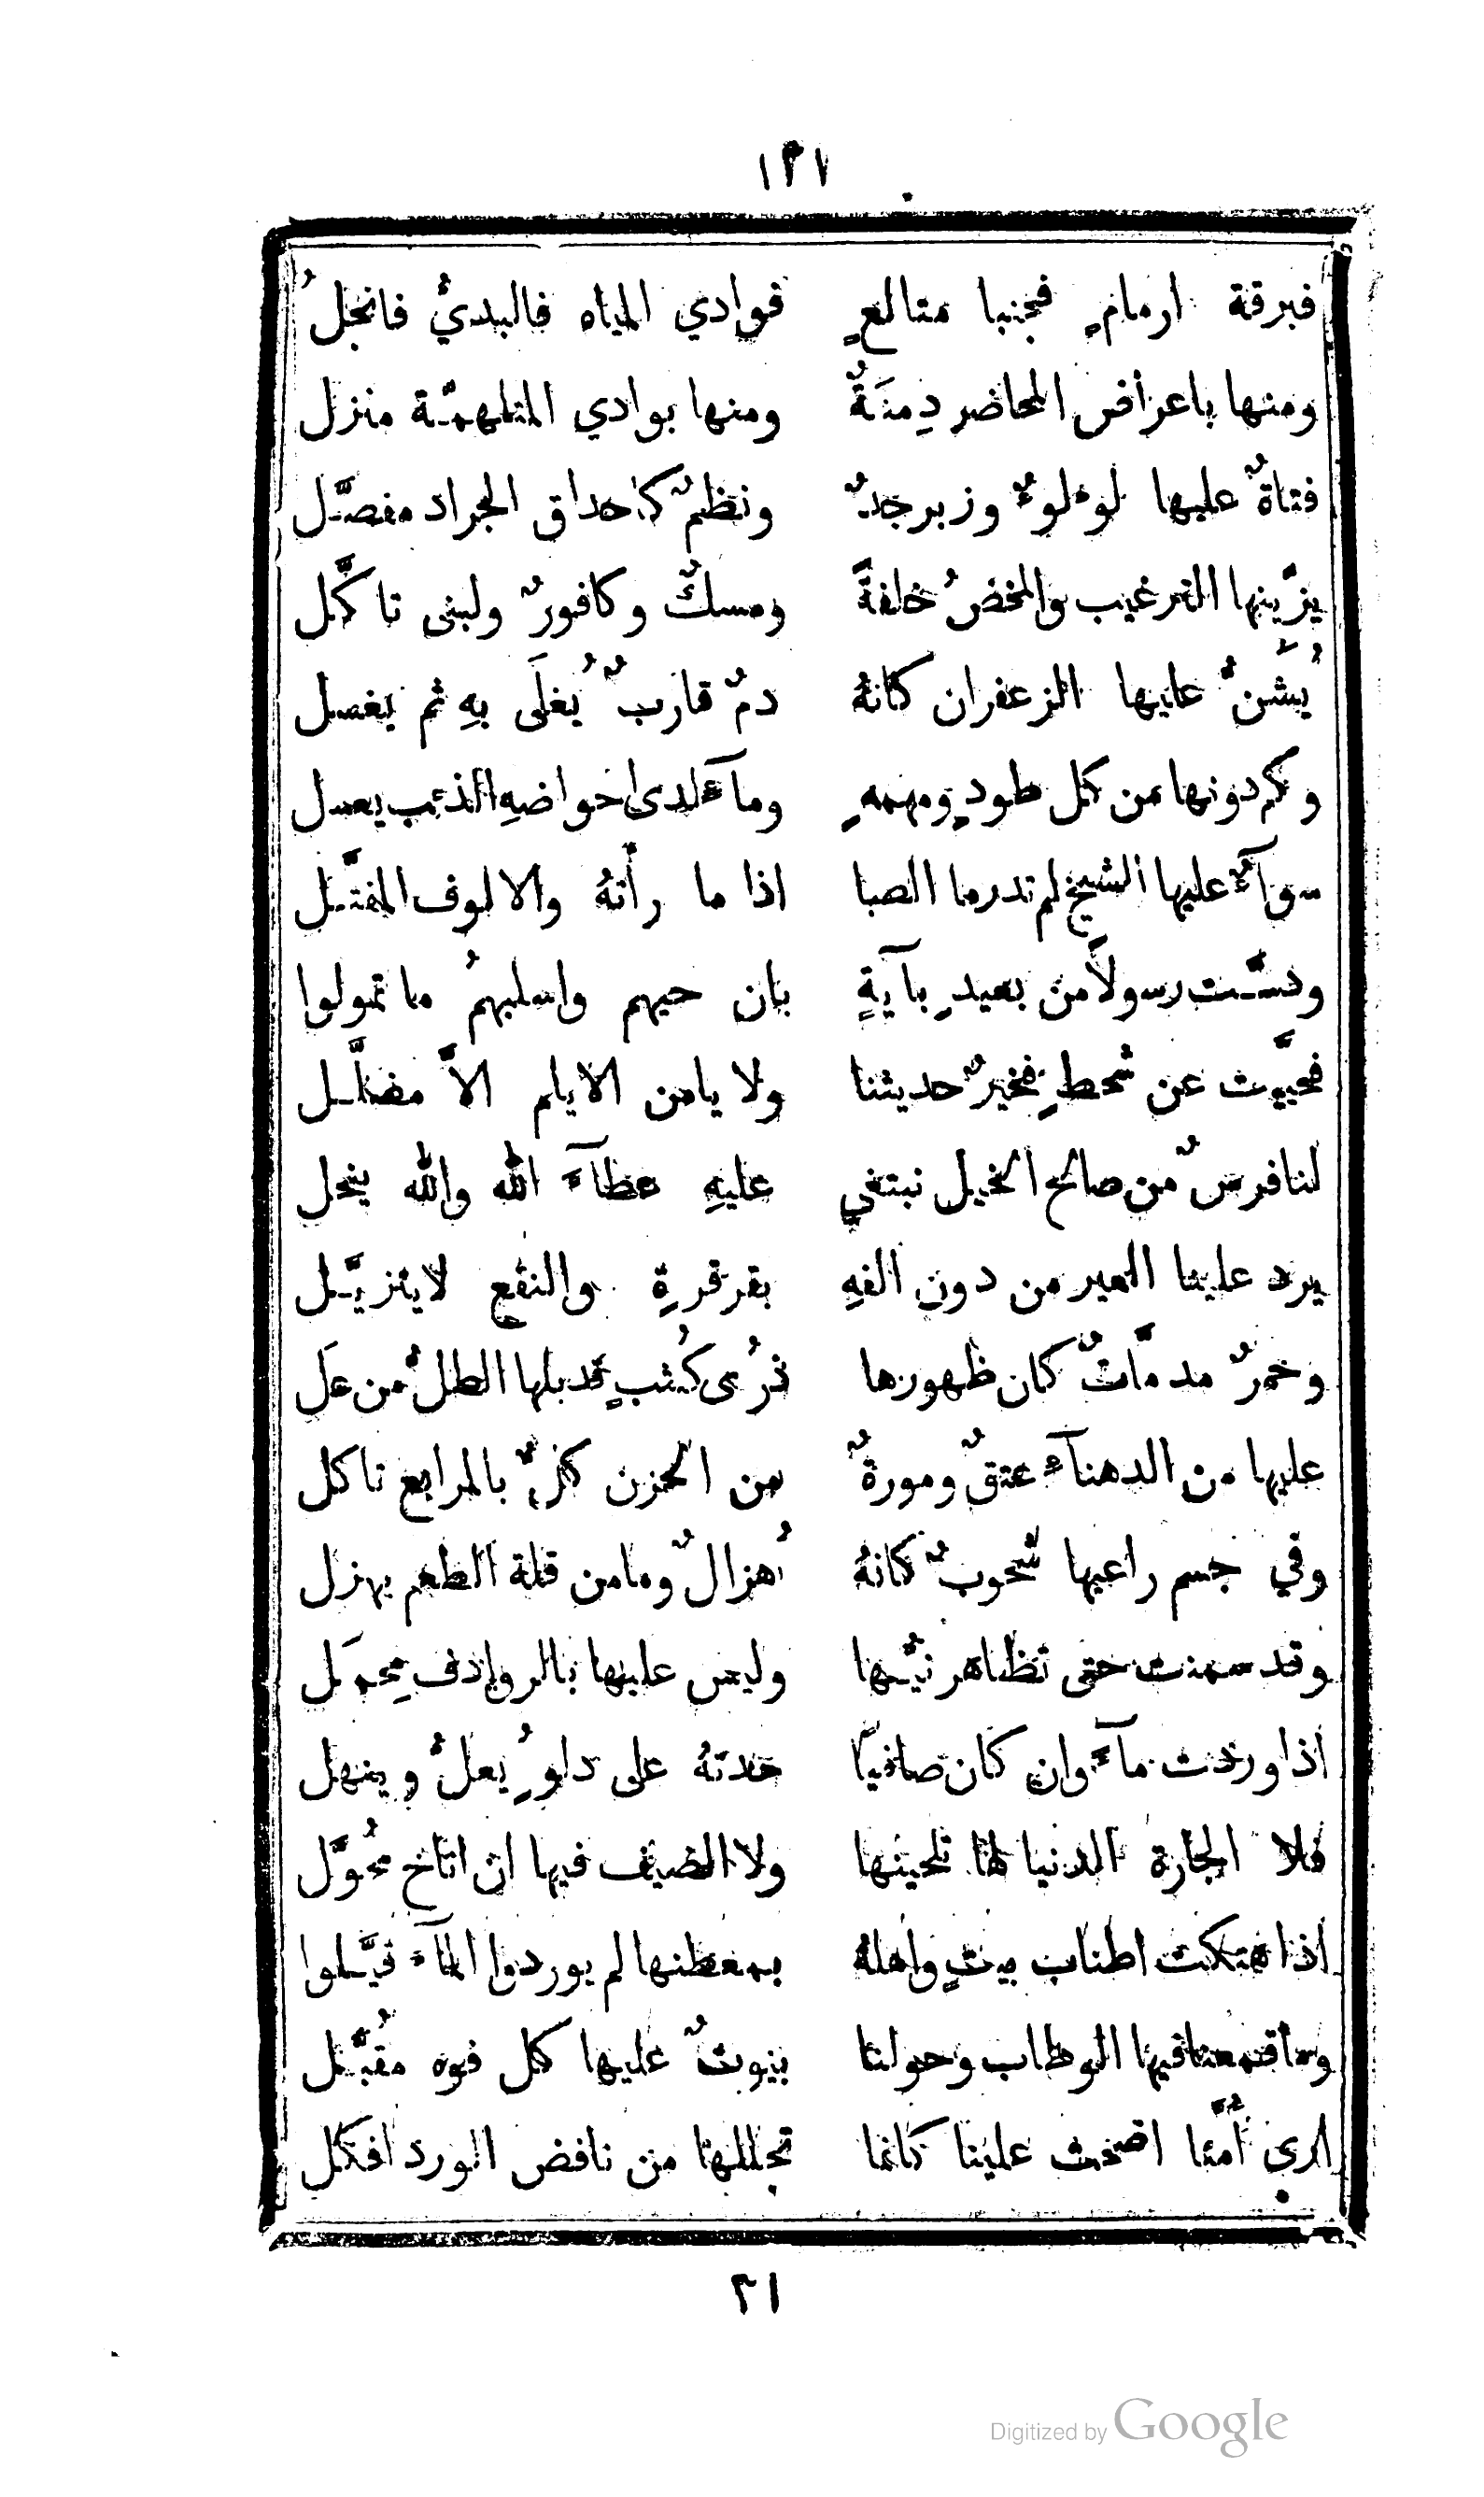 ١٢١
فبرقة ارمامٍ فجنبا متالعٍ فوادي المياه فالبديُّ فانجلُ
ومنها باعراض المحاضر دِمنَةٌ ومنها بوادي المتلهمّة منزل
فتاةٌ عليها لوءلوءٌ وزبرجدٌ ونظمٌ كاحداق الجراد مفصَّل
يزّينها الترغيب والمخضُ خلفةً ومسكٌ وكافورٌ ولبنى تاكَّل
يُشَنُّ عليها الزعفران كانهُ دمٌ قارتٌ يُغلَى بهِ ثم يغسل
وكم دونها من كل طودٍ ومهمهٍ ومآءٍ لدى احواضهِ الذئب يعسل
سوآءٌ عليها الشيخ لم تدرما الصبا اذا ما رأتهُ والالوف المقتَّل
ودسَّت رسولاً من بعيدٍ بآيةٍ بان حيهم واسلبهمُ ما تمولوا
فحيَّيت عن شحطٍ فخيرٌ حديثنا ولا يامن الايام الاَّ مضلَّل
لنا فرسٌ من صالح الخيل نبتغي عليهِ عطآءَ الله والله ينحل
يرد علينا العير من دون الفهِ بقرقرةٍ والنقع لا يتزيَّل
وحمرٌ مدمّاتٌ كان ظهورها ذُرى كُثبٍ قد بلها الطلُّ من عَل
عليها من الدهنآء عتقٌ ومورةٌ من الحزن كلٌّ بالمرابع تاكل
وفي جسم راعيها شحوبٌ كانهُ هُزالٌ وما من قلة الطعم يهزل
وقد سمنت حتى تظاهر نيُّها وليس عليها بالروادف مِحمَل
اذا وردت مآءً وان كان صافيًا حدتهُ على دلوٍ يُعلُّ وينهل
فلا الجارة الدنيا لها تلحينها ولا الضيف فيها ان اناخ مُحوَّل
اذا هتكت اطناب بيتٍ واهلهُ بمعطنها لم يوردوا المآء قيَّلوا
وما قمعنا فيها الوطاب وحولنا بيوتٌ عليها كل فوه مُقبَّل
ارى أُمّنا اضحت علينا كانما تجللها من نافض الورد افكل
٢١
Digitized by Google